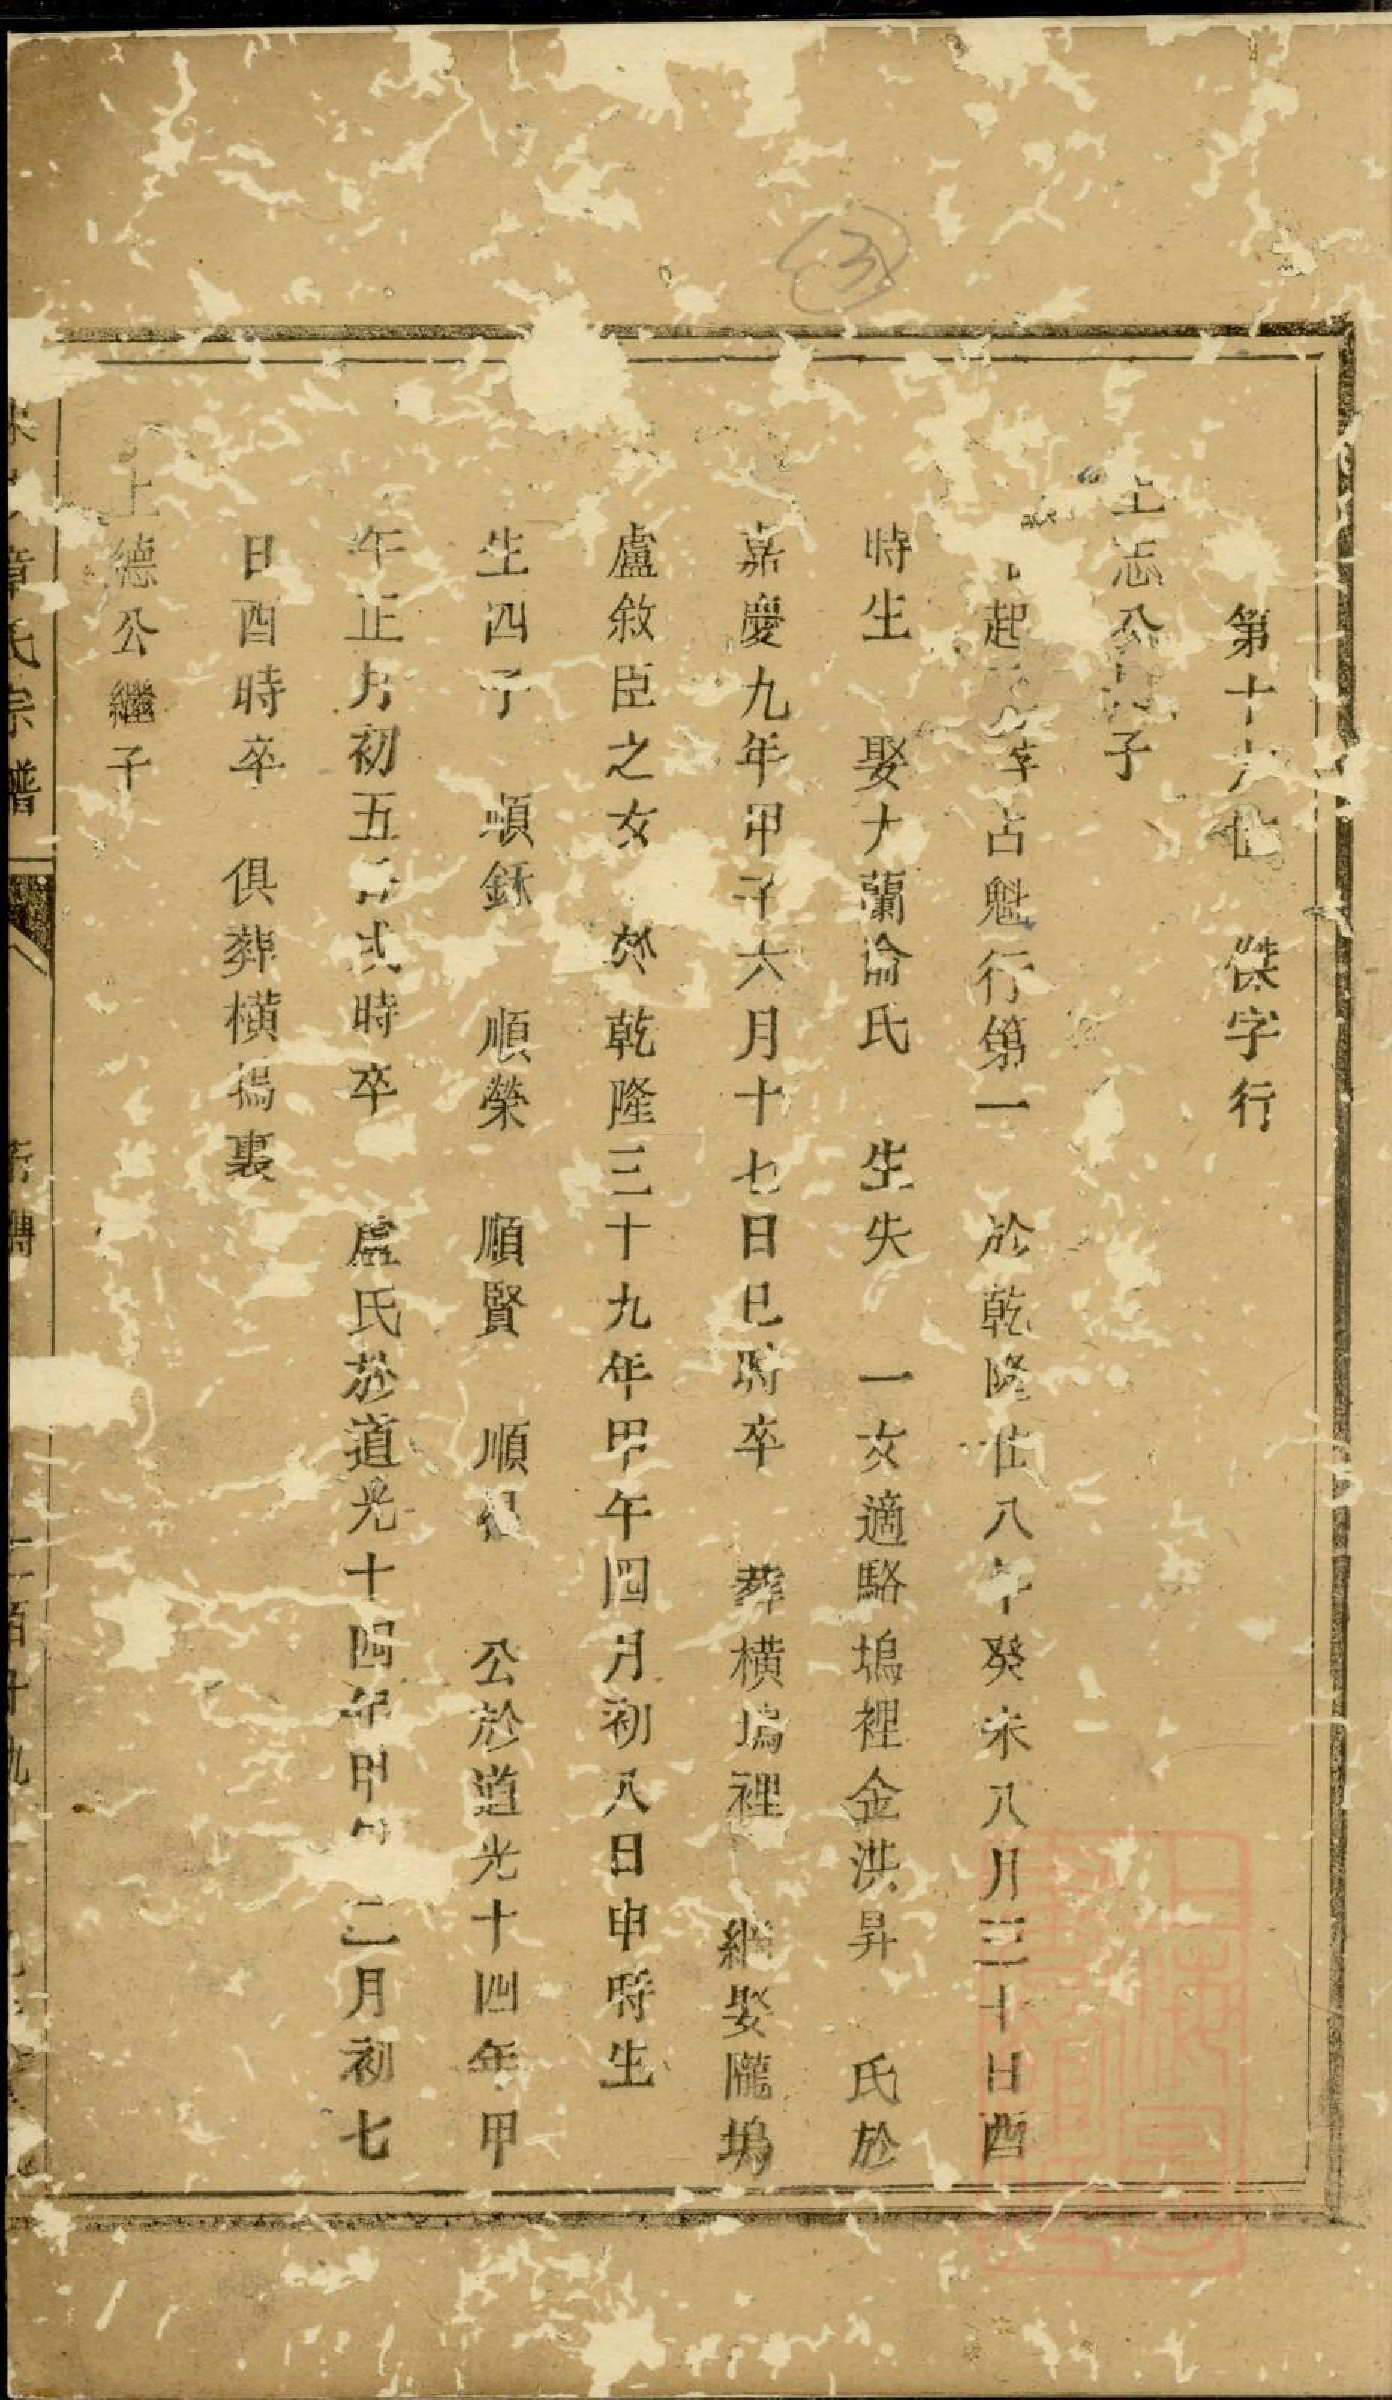 第十 世 傑字行
上志公 子
起 占魁行第一 於乾隆廿八年癸未八月三十日酉
時生 娶大蘭俞氏 生失 一女適駱塢裡金洪昇 氏於
嘉慶九年甲子六月十七日巳時卒 葬橫塢裡 繼娶隴塢
盧敘臣之女 於乾隆三十九年甲午四月初八日申時生
生四子 順銾 順榮 順賢 順 公於道光十四年甲
午正月初五日 時卒 盧氏於道光十四年甲午 二月初七
日酉時卒 俱葬橫塢裏
上德公繼子
章氏宗譜